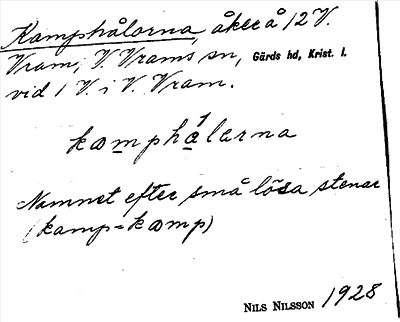 Kamphålorna, åker å 12 V.
Vram, V. Vrams sn, Gärds hd, Krist. l.
vid 1 V. i V. Vram.
kamphålarna
Namnet efter små lösa stenar
(kamp = kamp)
NILS NILSSON 1928